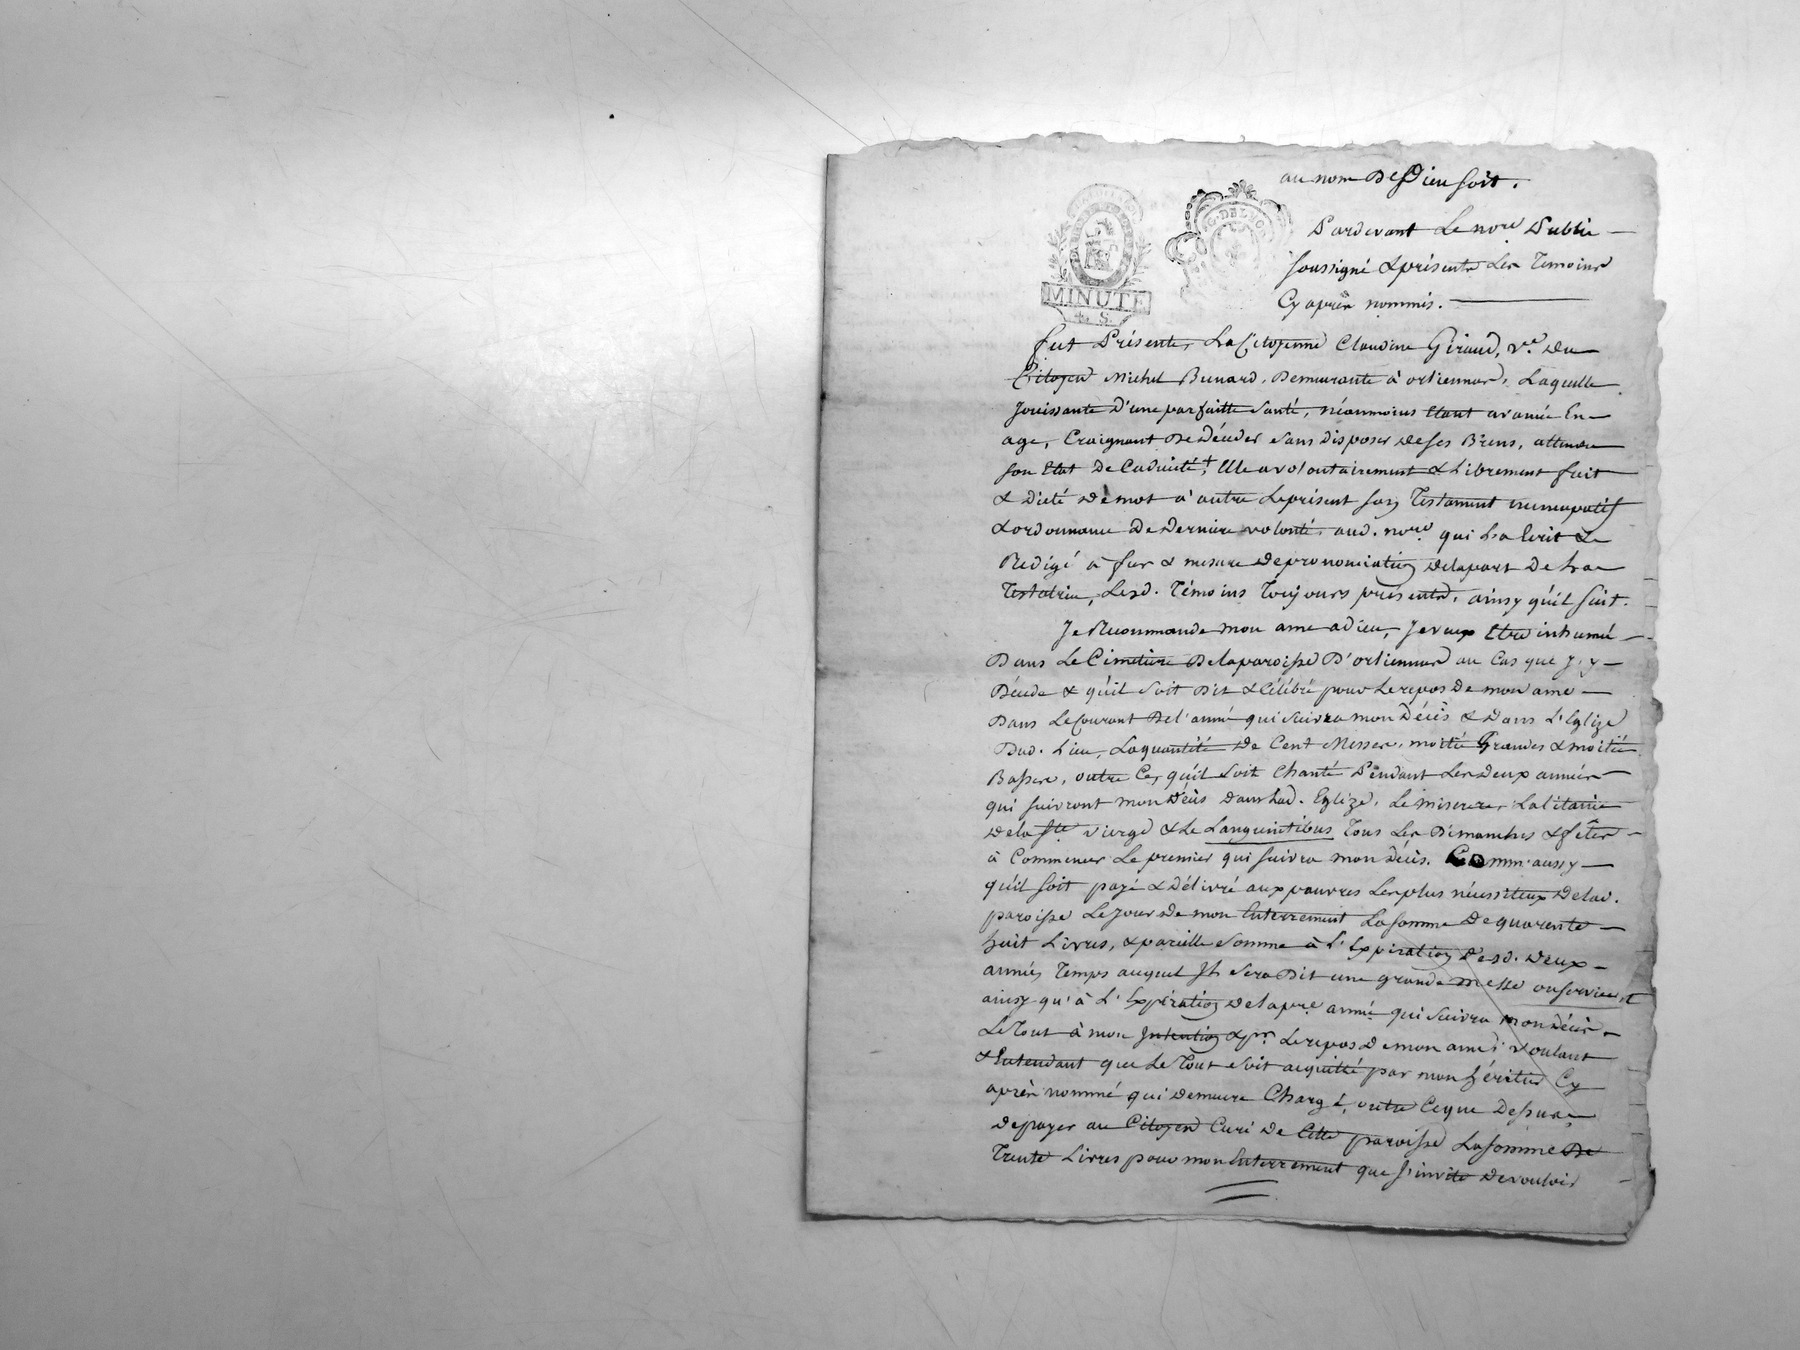 au nom De Dieu soit.
G. DE LYO
Pardevant Le nore Public
soussigné & présents Les Temoins
MINUTE
Cy après nommés.
4. S.
fut Présente, La Citoyenne Claudine Giraud, ve. du
Citoyen Michel Bunard, Demeurante à orliennas, Laquelle
Jouissante D'une parfaitte santé, néanmoins Etant avancée En
age, Craignant De Décéder sans disposer de ses Biens, attendu
son Etat De Caducité +, Elle a volontairement & Librement fait
& Dicté De mot à autre Le présent son Testament nuncupatif
& ordonnance De Derniere volonté, aud. nore. qui L'a Ecrit &
Redigé à fur & mesure De prononciation De la part De La
Testatrice, Lesd. Témoins Toujours présents, ainsy qu'il suit.
Je Recommande mon ame a dieu, Je veux Etre inhumé
Dans Le Cimetiere De la paroisse D'orliennas au Cas que J'y
Décede & qu'il soit Dit & Célébré pour Le repos De mon ame
Dans Le Courant De l'année qui suivra mon Décès & Dans L'Eglize
Dud. Lieu, La quantité De Cent Messes, moitié Grandes & moitié
Basses, outre Ce, qu'il soit Chanté Pendant Les Deux années
qui suivront mon Décès dans Lad. Eglize, Le miserere, La litanie
De la Ste vierge & Le Languintibus Tous Les Dimanches & fêtes
à Commencer Le premier qui suivra mon Décès. Comm'aussy
qu'il soit payé & Délivré aux pauvres Les plus nécessiteux De lad.
paroisse Le Jour De mon Enterrement La somme De quarente
huit Livres, & pareille somme à L'Expiration Desd. Deux
années, Temps auquel Il sera Dit une grande messe ou service,
ainsy qu'à L'Expiration De la pre. année qui suivra mon Décès
Le Tout à mon Intention & pr. Le repos De mon ame; voulant
& Entendant que Le Tout soit acquitté par mon héritier Cy
après nommé qui Demeure Chargé, outre Ce que Dessus
De payer au Citoyen Curé De Cette paroisse La somme De
Trente Livres pour mon Enterrement que J'invite De vouloir